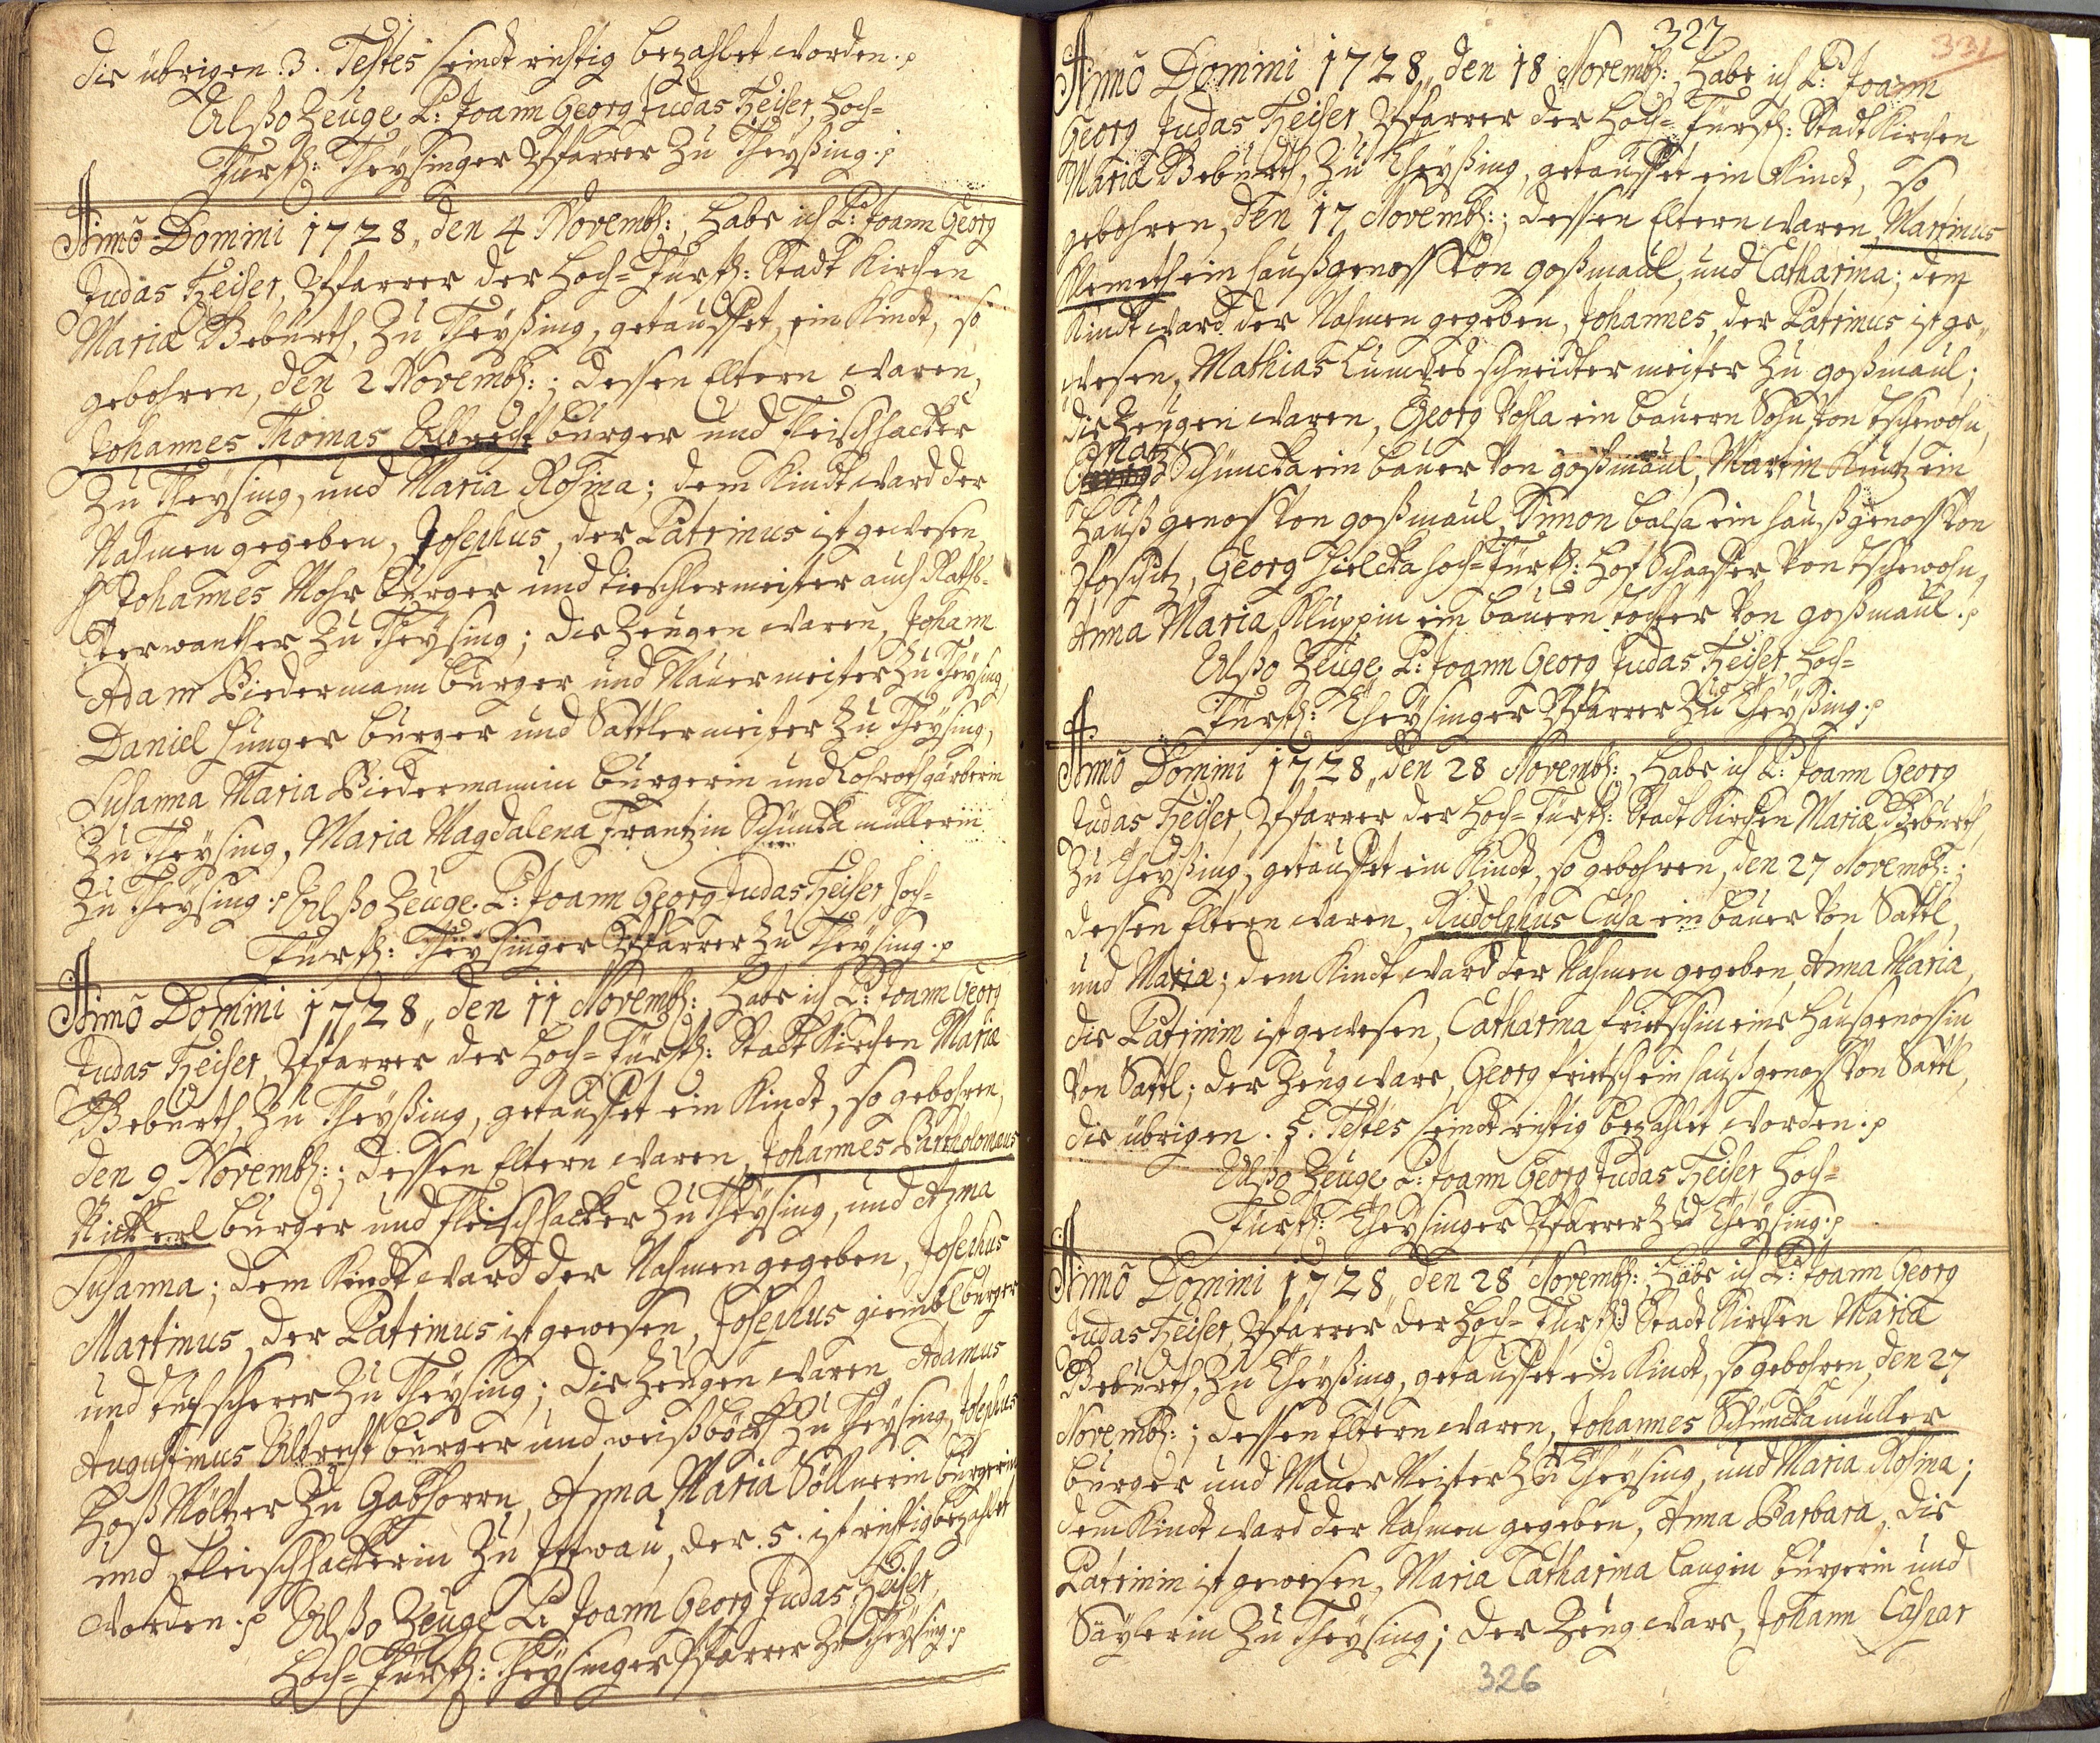 die übrigen .3. Testes seindt richtig bezahlet worden.
Alßo Zeuge P: Joann Georg Judas Heiser, Hoch=
Fürstl: Theysinger Pfarrer Zu Theyßing.
Anno Domini 1728, den 4 Novemb: Habe ich P: Joann Georg
Judas Heiser, Pfarrer der Hoch=Fürstl: Stadt Kirchen
Mariæ Geburth, Zu Theyßing, getauffet, ein Kindt, so
gebohren, den 2 Novemb:; dessen Eltern waren,
Johannes Thomas Albrecht burger und Fleischhacker
Zu Theysing, und Maria Rosina; dem Kindt ward der
Nahmen gegeben, Josephus, der Patrinus ist gewesen,
H Johannes Mohr burger und tieschlermeister auch Raths=
Verwanther Zu Theysing; die Zeugen waren, Johann
Adam Biedermann burger und Mauermeister Zu Theysing,
Daniel Hunger burger und Sattlermeister Zu Theysing,
Susanna Maria Biedermannin burgerin und Rothgärberin
Zu Theysing, Maria Magdalena Frantzin Schünka müllerin
Zu Theysing. Alßo Zeuge P: Joann Georg Judas Heiser Hoch=
Fürstl: Theysinger Pfarrer Zu Theysing.
Anno Domini 1728, den 11 Novemb: Habe ich P: Joann Georg
Judas Heiser, Pfarrer der Hoch=Fürstl: Stadt Kirchen Mariæ
Geburth, Zu Theyßing, getauffet ein Kindt, so gebohren,
den 9 Novemb:; dessen Eltern waren, Johannes Bartholomæus
Rickerl burger und Fleischhacker Zu Theysing, und Anna
Susanna; dem Kindt ward der Nahmen gegeben, Josephus
Martinus, der Patrinus ist gewesen, Josephus giembl burger
und tuchscherer Zu Theysing; die Zeugen waren Adamus
Augustinus Albrecht burger und weißböckh Zu Theysing, Josephus
Hoß Müllner Zu Gabhorn, Anna Maria Söllnerin burgerin
und Fleischhackerin Zu, der .5. ist richtig bezahlet
worden. Alßo Zeuge P: Joann Georg Judas Heiser,
Hoch=Fürstl: Theysinger Pfarrer Zu Theysing.
327
331
Anno Domini 1728, den 18 Novemb: Habe ich P: Joann
Georg Judas Heiser, Pfarrer der Hoch=Fürstl: Stadt Kirchen
Mariæ Geburth, Zu Theyßing, getauffet ein Kindt, so
gebohren, den 17 Novemb:; dessen Eltern waren, Martinus
Klemeth ein haußgenoss Von goßmaul, und Catharina; dem
Kindt ward der Nahmen gegeben, Johannes, der Patrinus ist ge=
wesen, Mathias schneidermeister Zu goßmaul;
die Zeugen waren, Georg Vohla ein bauern Sohn von tschewohn,
Schüncka ein bauer Von goßmaul, Martin Kuntz ein
haußgenoss Von goßmaul, Simon balsa ein haußgenoss Von
Poschitz, Georg Hielcka Hoch=Fürstl: Hof Schaffer Von tschewohn,
Anna Maria Kluppin ein bauern tochter Von goßmaul.
Alßo Zeuge P: Joann Georg Judas Heiser, Hoch=
Fürstl: Theysinger Pfarrer Zu Theyßing.
Anno Domini 1728, den 28 Novemb: Habe ich P: Joann Georg
Judas Heiser, Pfarrer der Hoch=Fürstl: Stadt Kirchen Mariæ Geburth,
Zu Theyßing, getauffet ein Kindt, so gebohren, den 27 Novemb:;
dessen Eltern waren, Rudolphus Cusa ein bauer Von Sattl,
und Maria; dem Kindt ward der Nahmen gegeben, Anna Maria,
die Patrinin ist gewesen, Catharina frietschin eine Haußgenossin
Von Sattl; der Zeug ware, Georg frietsch ein haußgenoss Von Sattl,
die übrigen .5. Testes seindt richtig bezahlet worden.
Alßo Zeuge P: Joann Georg Judas Heiser Hoch=
Fürstl: Theysinger Pfarrer Zu Theysing.
Anno Domini 1728, den 28 Novemb: Habe ich P: Joann Georg
Judas Heiser, Pfarrer der Hoch=Fürstl: Stadt Kirchen Mariæ
Geburth, Zu Theyßing, getauffet ein Kindt, so gebohren, den 27
Novemb:; dessen Eltern waren, Johannes Schüncka müller
burger und Mauer Meister Zu Theysing, und Maria Rosina;
dem Kindt ward der Nahmen gegeben, Anna Barbara, die
Patrinin ist gewesen, Maria Catharina Langin burgerin und
Saylerin Zu Theysing; der Zeug ware, Johann Caspar
326